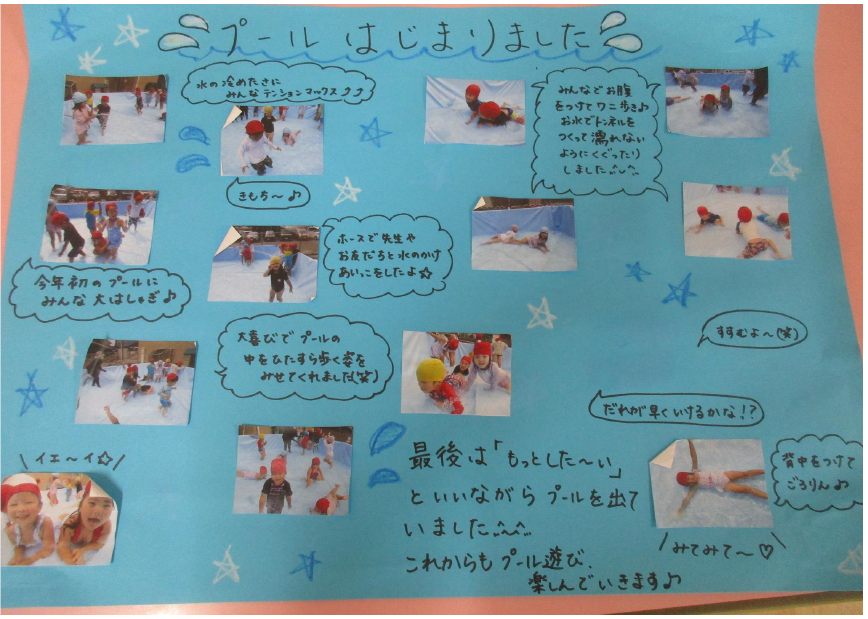 プール はじまりました
水の冷めたさに
みんなテンションマックス♪♪
みんなでお腹
をつけてワニ歩き♪
お水でトンネルを
つくって濡れない
ようにくぐったり
しました^^
きもち〜♪
ホースで先生や
お友だちと水のかけ
あいっこをしたよ☆
今年初のプールに
みんな大はしゃぎ♪
大喜びでプールの
中をひたすら歩く姿を
みせてくれました(笑)
すすむよ〜(笑)
だれが早くいけるかな!?
イエ〜イ☆
背中をつけて
ごろりん♪
最後は「もっとした〜い」
といいながらプールを出て
いました^^
これからもプール遊び、
楽しんでいきます♪
みてみて〜♡